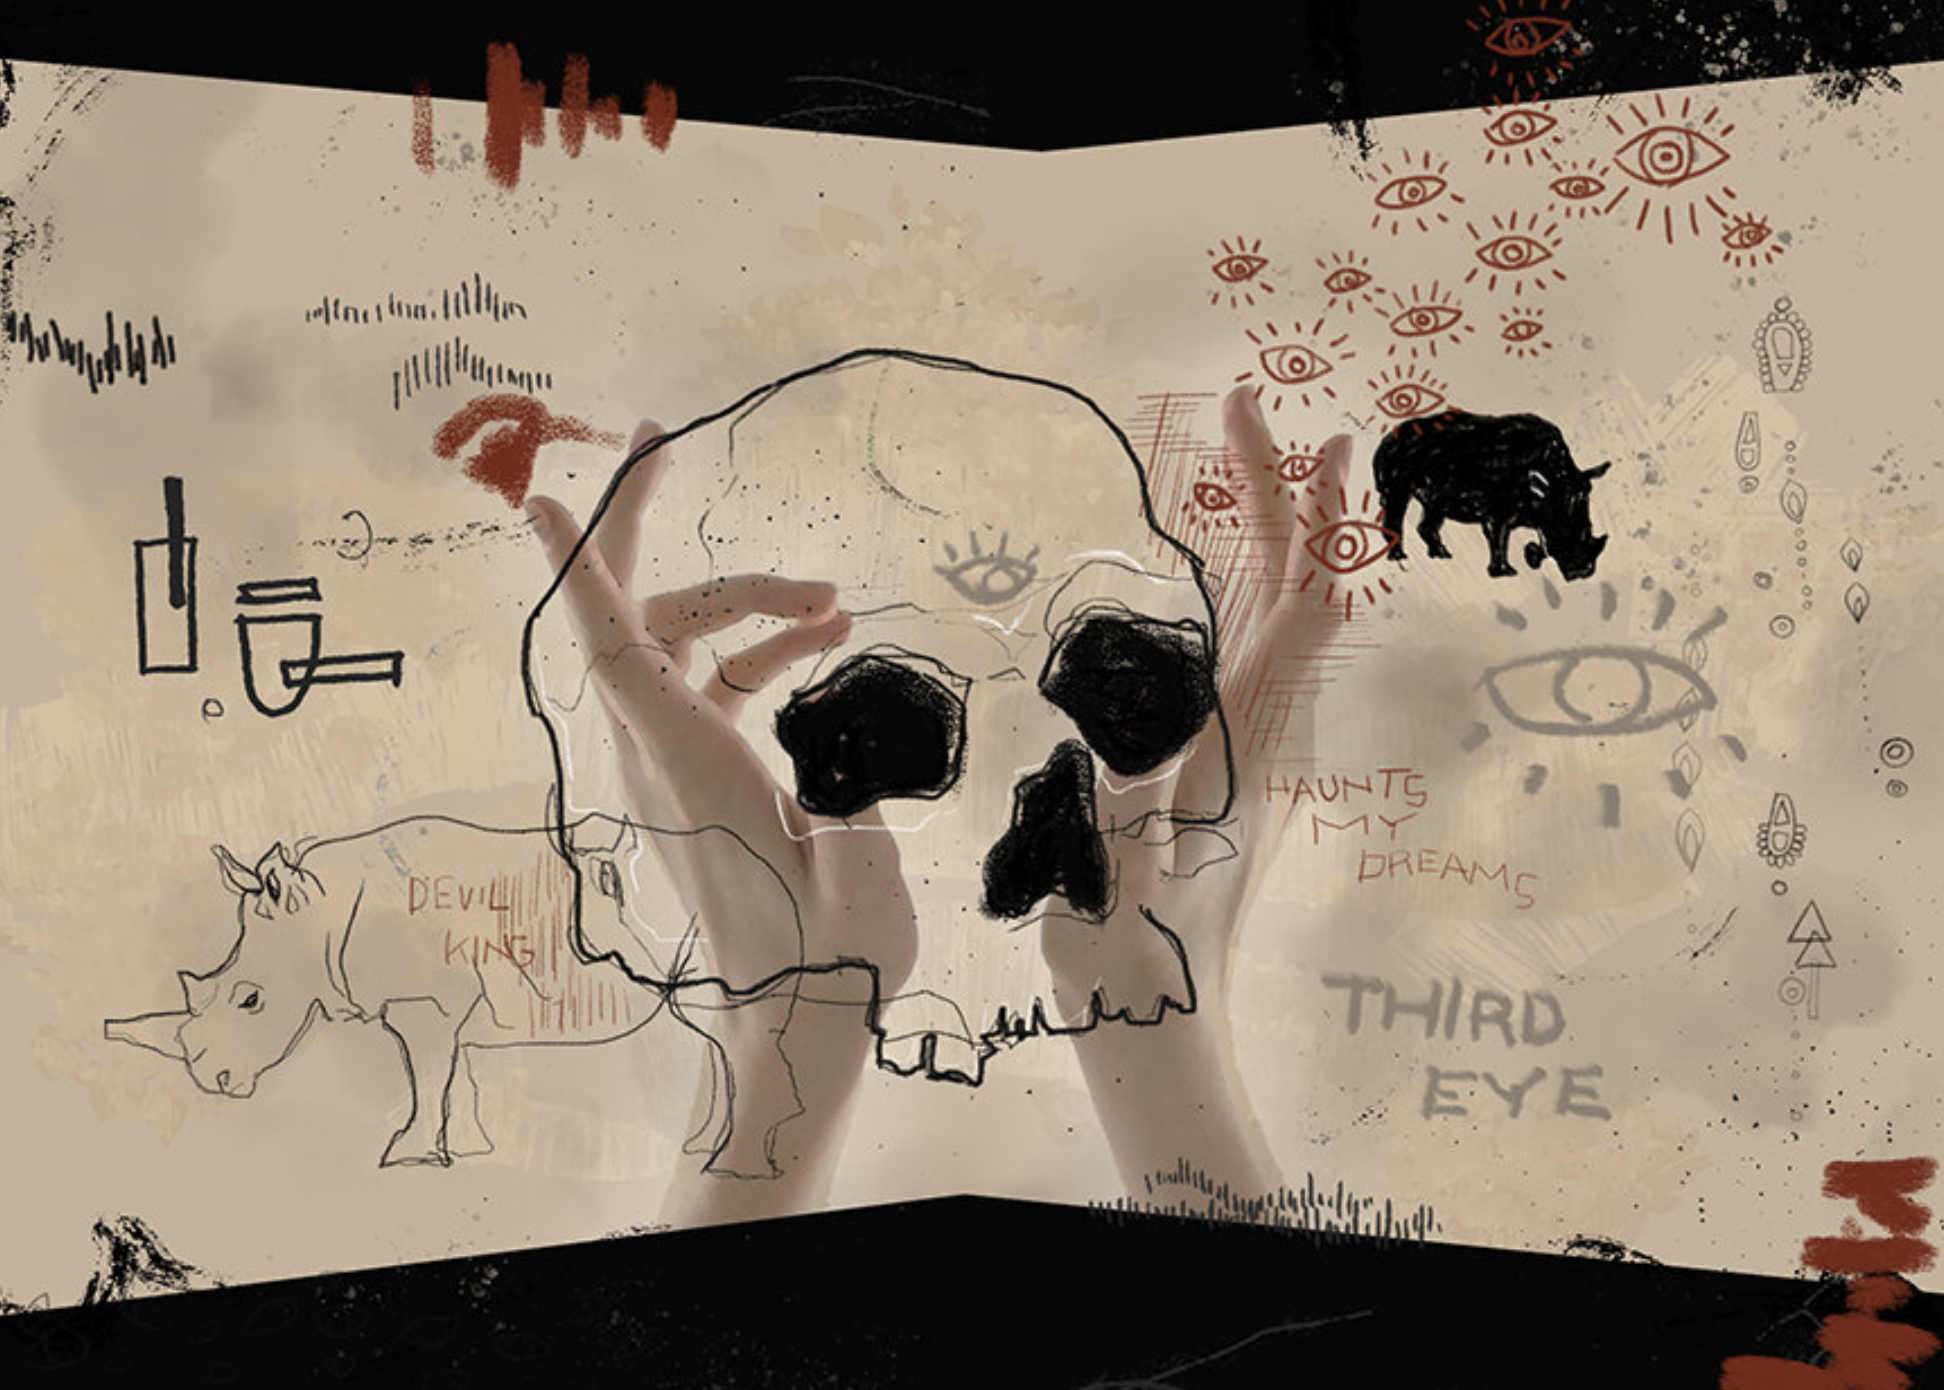 DEVIL
KING
HAUNTS
MY
DREAMS
THIRD
EYE